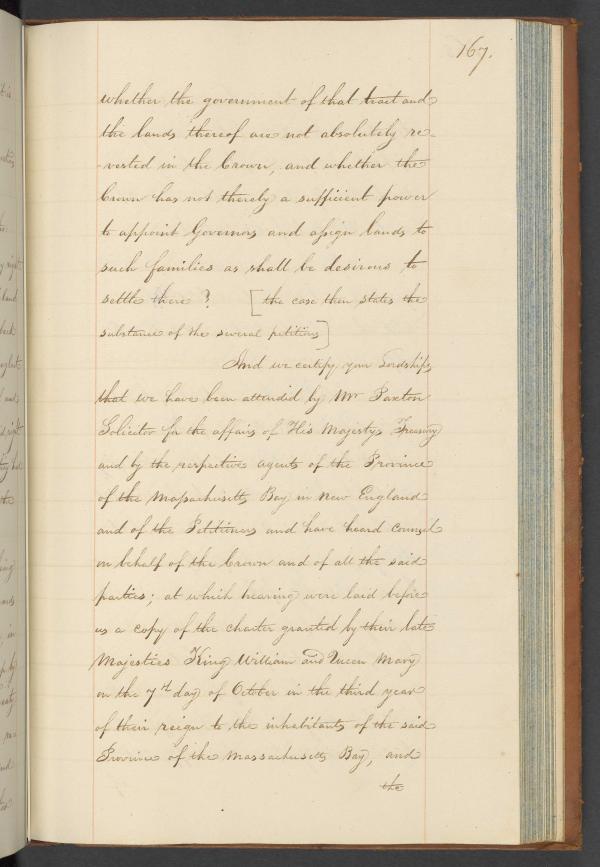 167.
whether the government of that tract and
the lands thereof are not absolutely re-
-vested in the Crown, and whether the
Crown has not thereby a sufficient power
to appoint Governors and assign lands to
such families as shall be desirous to
settle there? [the case then states the
substance of the several petitions]
And we certify your Lordships
that we have been attended by Mr Paxton
Solicitor for the affairs of His Majestys Treasury
and by the respective agents of the Province
of the Massachusetts Bay in New England
and of the Petitioners and have heard counsel
on behalf of the Crown and of all the said
parties; at which hearing were laid before
us a copy of the charter granted by their late
Majesties King William and Queen Mary
on the 7th day of October in the third year
of their reign to the inhabitants of the said
Province of the Massachusetts Bay, and
the